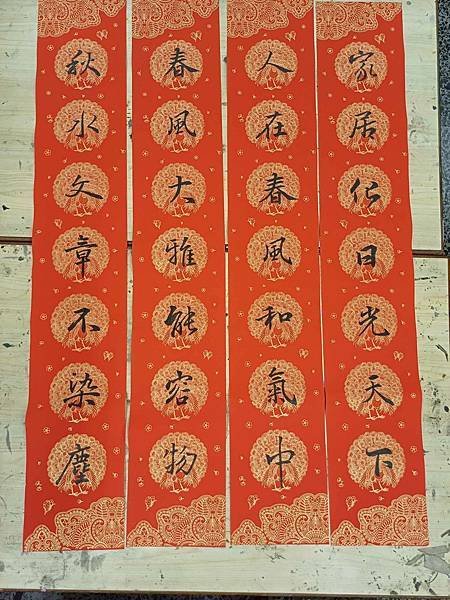 家居仁日光天下
人在春風和氣中
春風大雅能容物
秋水文章不染塵